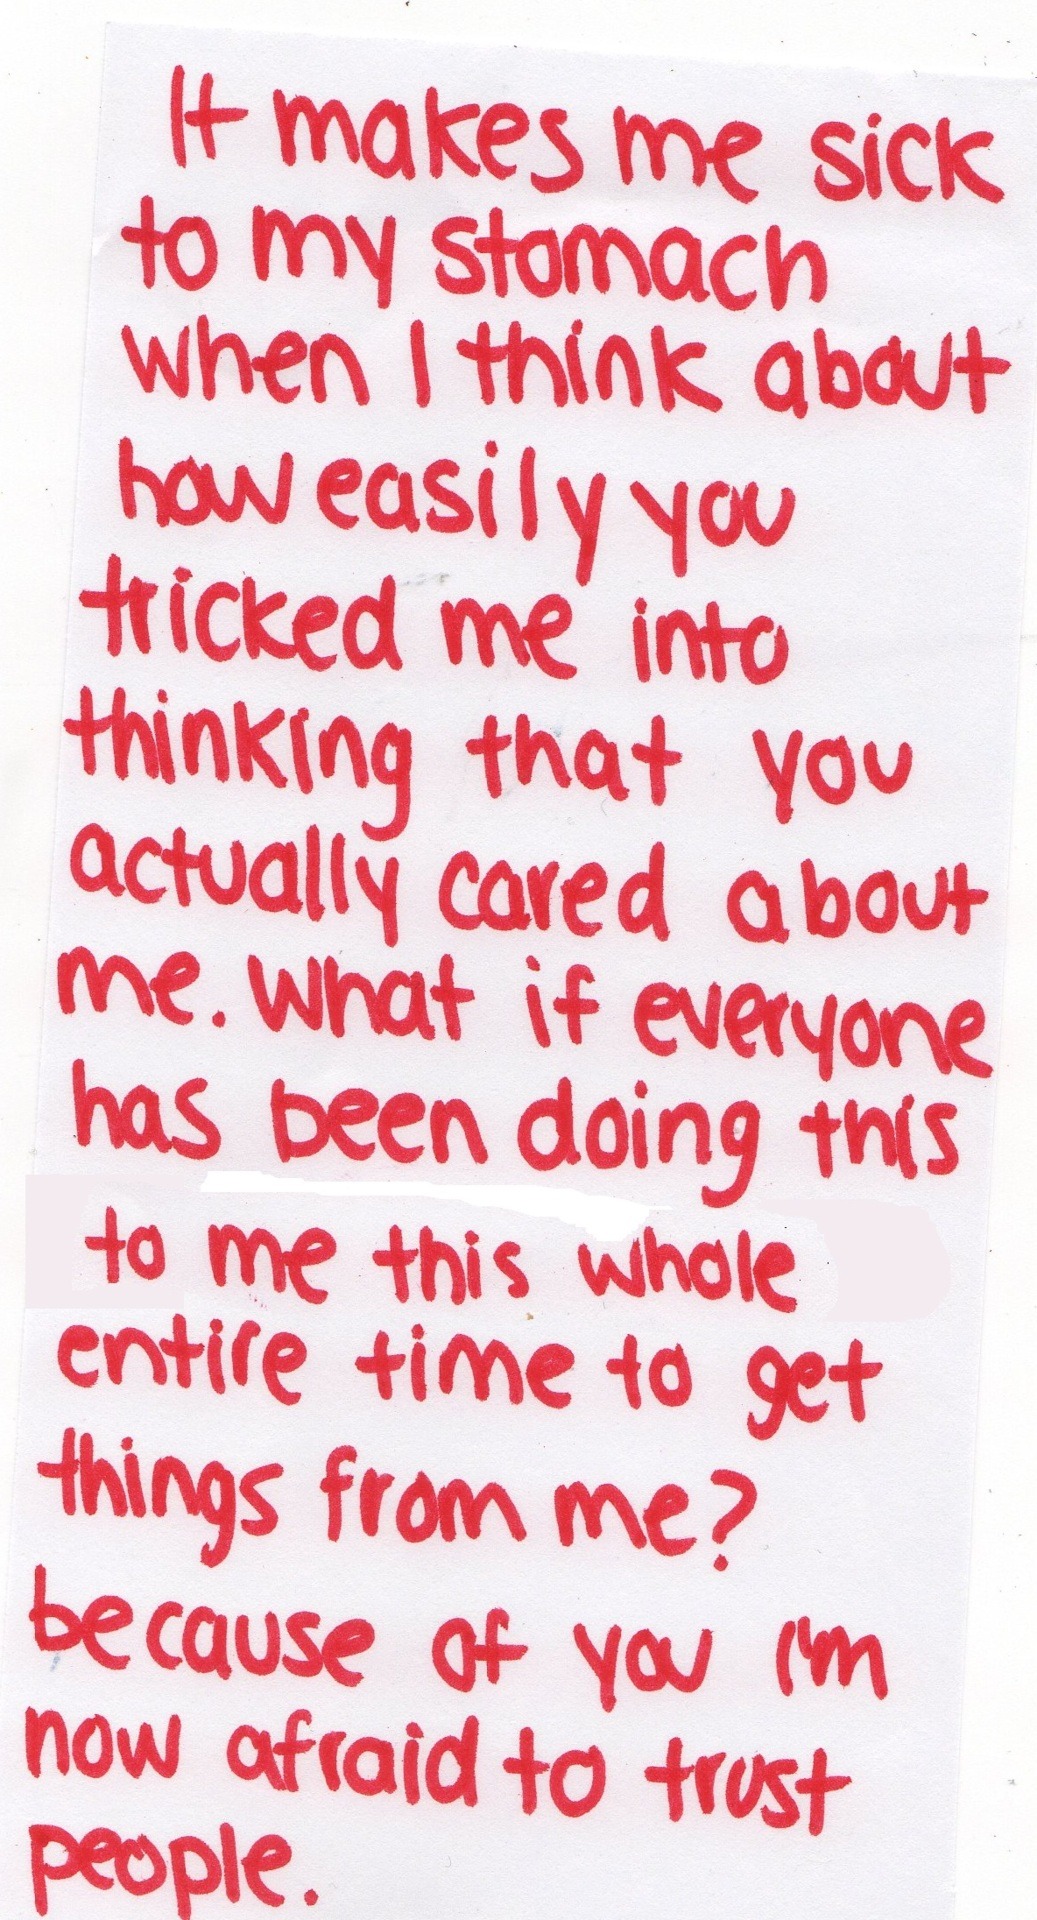 It makes me sick
to my stomach
when I think about
how easily you
tricked me into
thinking that you
actually cared about
me. What if everyone
has been doing this
to me this whole
entire time to get
things from me?
because of you I'm
now afraid to trust
people.